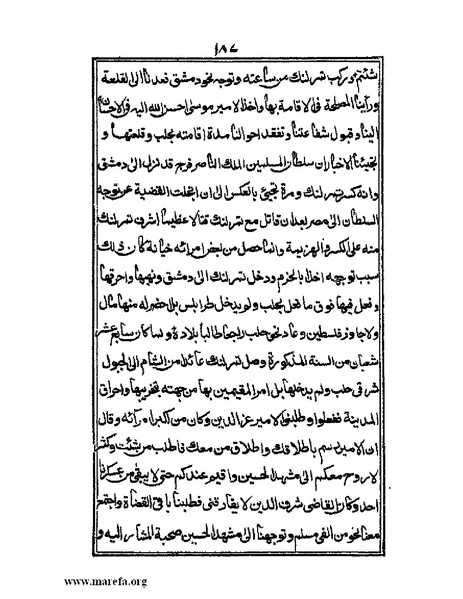 ١٨٧
شئتم وركب تمرلنك من ساعته وتوجه نحو دمشق فعدنا الى القلعة
ورأينا المصلحة فى الاقامة بها واخذ الامير موسى احسن الله اليه فى الاحسان
الينا وقبول شفاعتنا وتفقد احوالنا مدة اقامته بحلب وقلعتها و
تجيئنا الاخبار ان سلطان المسلمين الملك الناصر فرج قد نزل الى دمشق
وانه كسر تمرلنك ومرة تجيئ بالعكس الى ان انجلت القضية عن توجه
السلطان الى مصر بعد ان قاتل مع تمرلنك قتالا عظيما اشرف تمرلنك
منه على الكسر والهزيمة وانما حصل من بعض امرائه خيانة كان ذلك
سبب توجهه اخذا بالحزم ودخل تمرلنك الى دمشق ونهبها واحرقها
وفعل فيها فوق ما فعل بحلب ولم يدخل طرابلس بل احضر له منها مال
ولا جاوز فلسطين وعاد نحو حلب راجعا طالبا بلاده ولما كان سابع عشر
شعبان من السنة المذكورة وصل تمرلنك عائدا من الشام الى الجبول
شرقى حلب ولم يدخلها بل امر المقيمين بها من جهته بتخريبها واحراق
المدينة ففعلوا وطلبنى الامير عز الدين وكان من اكبر امرائه وقال
ان الامير رسم باطلاقك واطلاق من معك فاطلب من شئت وكثر
لاروح معكم الى مشهد الحسين واقيم عندكم حتى لا يبقى من عسكرنا
احد وكان القاضى شرف الدين لا يفارقنى فطلبنا باقى القضاة واجتمع
معنا نحو من الفى مسلم وتوجهنا الى مشهد الحسين صحبة المشار اليه و
www.marefa.org